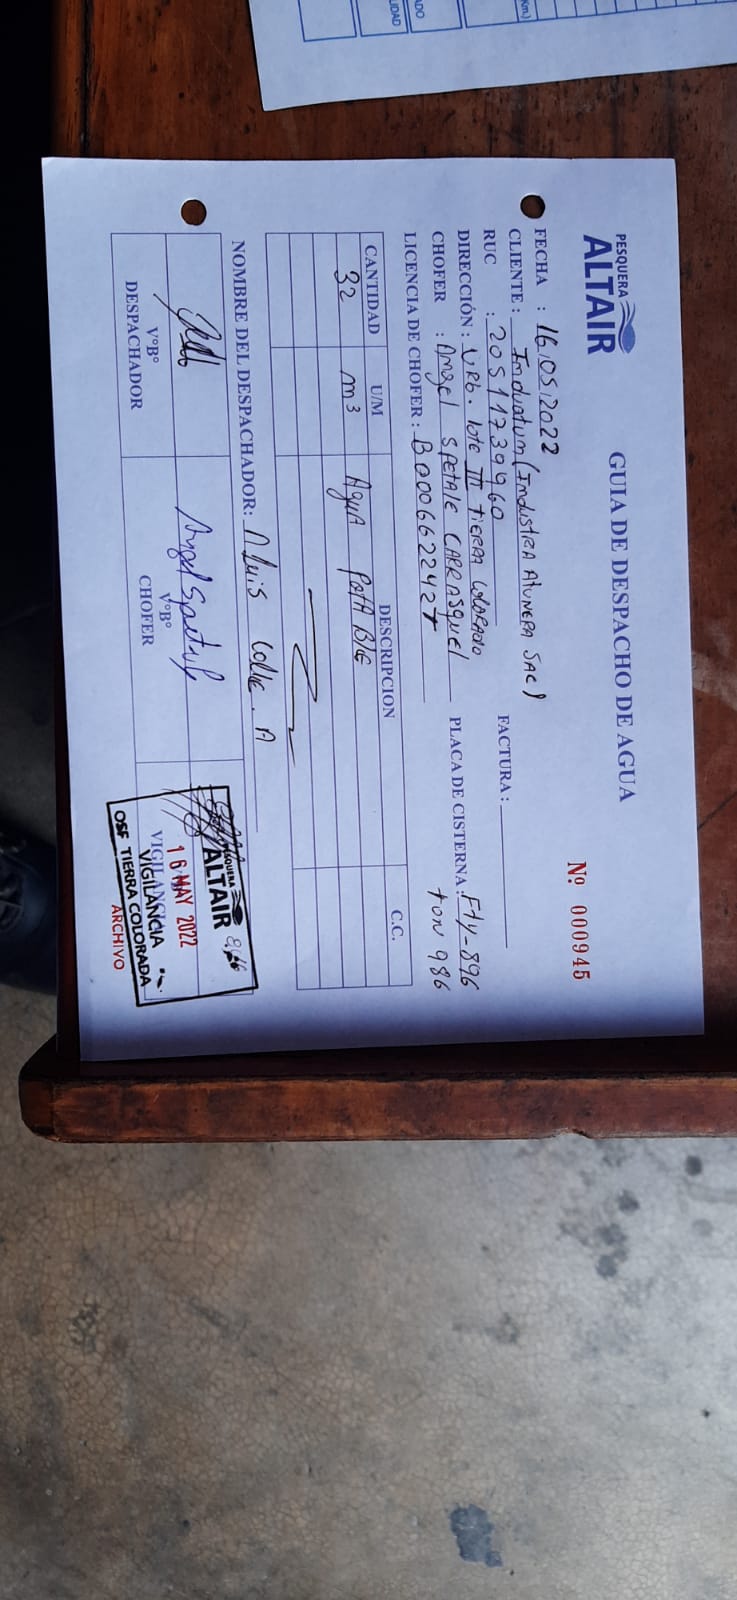 PESQUERA
ALTAIR
GUIA DE DESPACHO DE AGUA
Nº 000945
FECHA : 16.05.2022
CLIENTE : Induatum (Industria Atunera SAC)
RUC : 20511739960
FACTURA :
DIRECCIÓN : URb. lote III tierra colorada
CHOFER : Angel SPetale CARRASquel
PLACA DE CISTERNA : F1y-896
ton 986
LICENCIA DE CHOFER : B00066224
CANTIDAD U/M DESCRIPCION C.C.
32 m3 Agua PotABle
NOMBRE DEL DESPACHADOR: Luis
VºBº
DESPACHADOR
VºBº
CHOFER
VIGILANCIA
PESQUERA
ALTAIR
16 MAY 2022
VIGILANCIA
OSF TIERRA COLORADA
ARCHIVO
Km.)